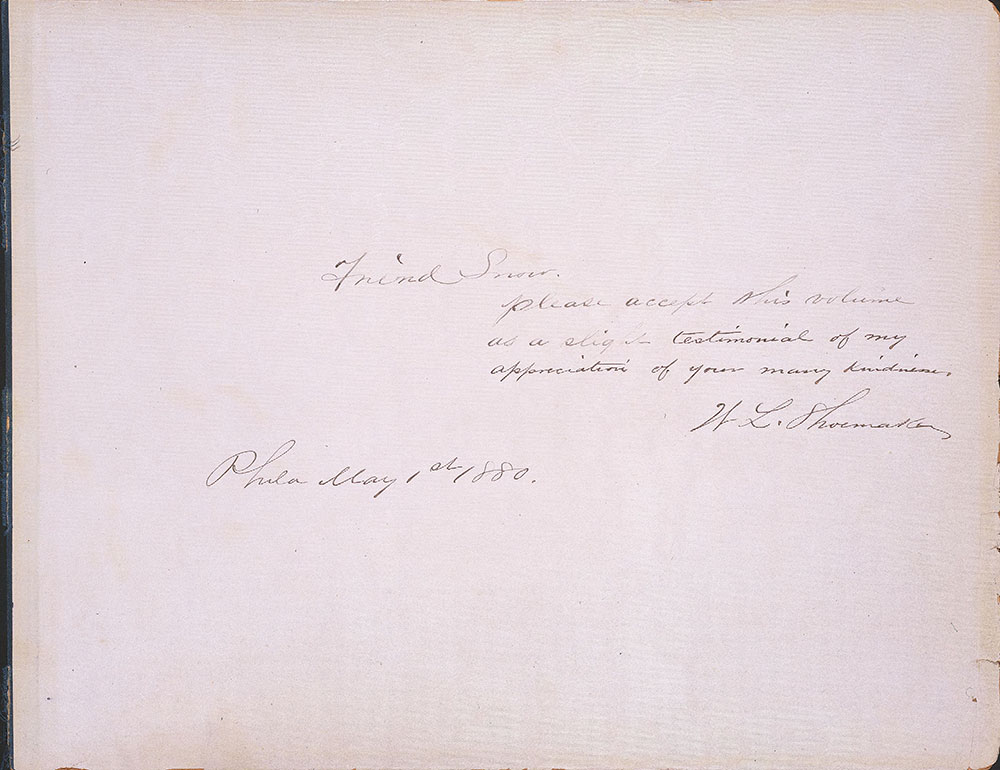 Friend Snow.
please accept this volume
as a slight testimonial of my
appreciation of your many kindness.
W L. Shoemaker
Phila May 1st 1880.